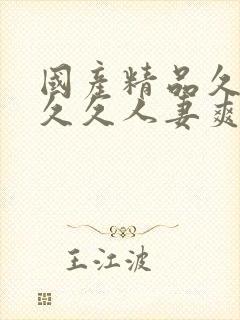 國産精品久
久久人妻爽
王江波